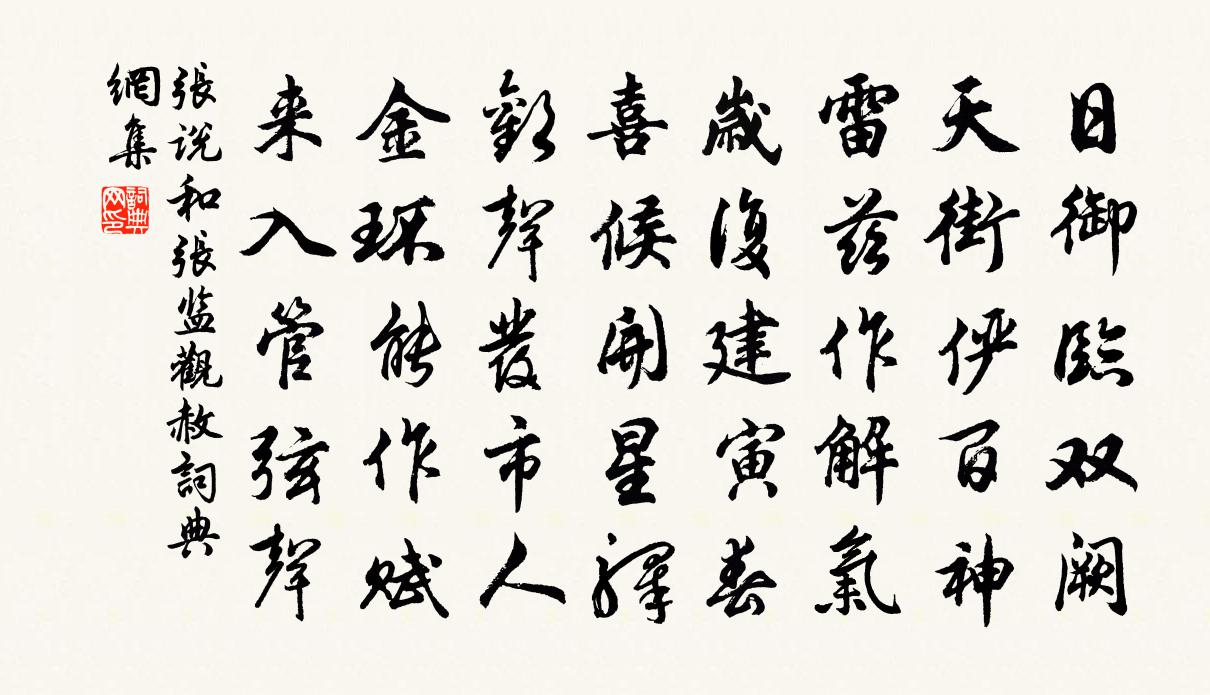 日御臨双阙
天街俨百神
雷兹作解氣
歲復建寅春
喜候開星驛
歡聲發市人
金环能作赋
来入管弦聲
張说和張监觀赦詞典
網集
詞典网印